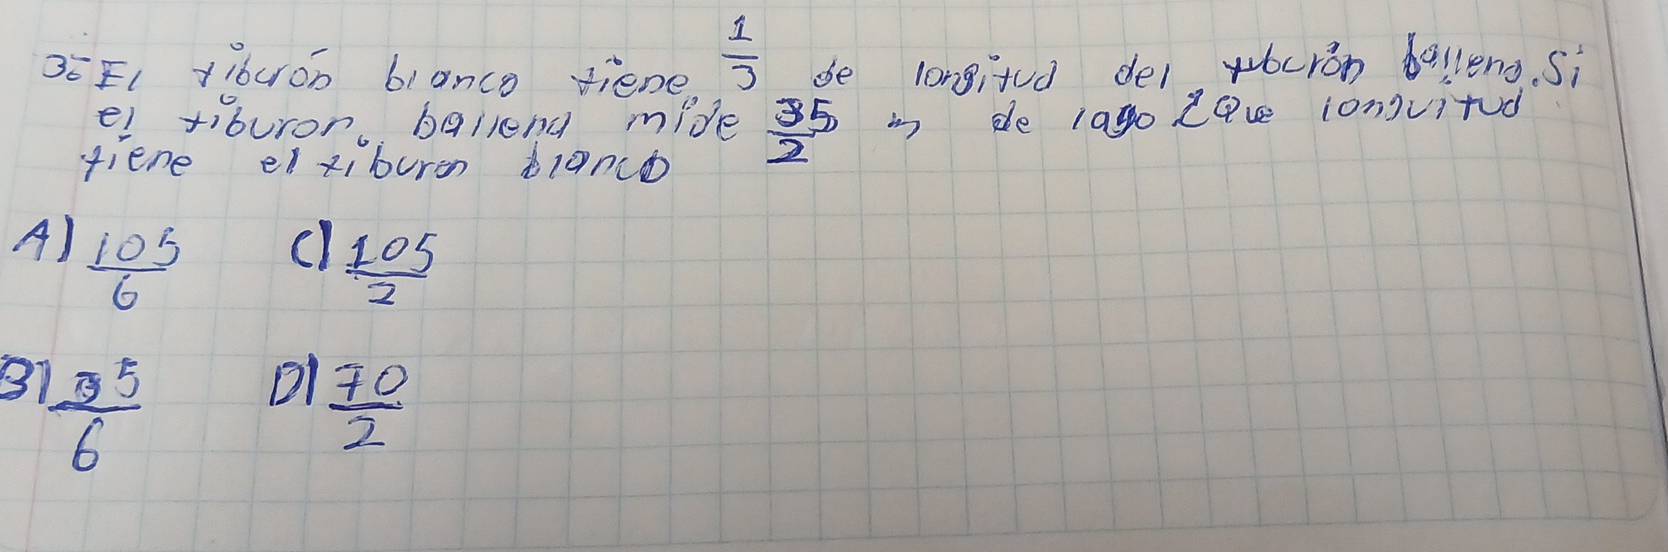 3- El tiburón blanco tiene 1/3 de longitud del tuburón ballena. Si
el tiburon ballena mide 35/2 m de lago ¿Que longuitud
tiene el tiburon blanco
A) 105/6 C) 105/2
B) 35/6 D) 70/2